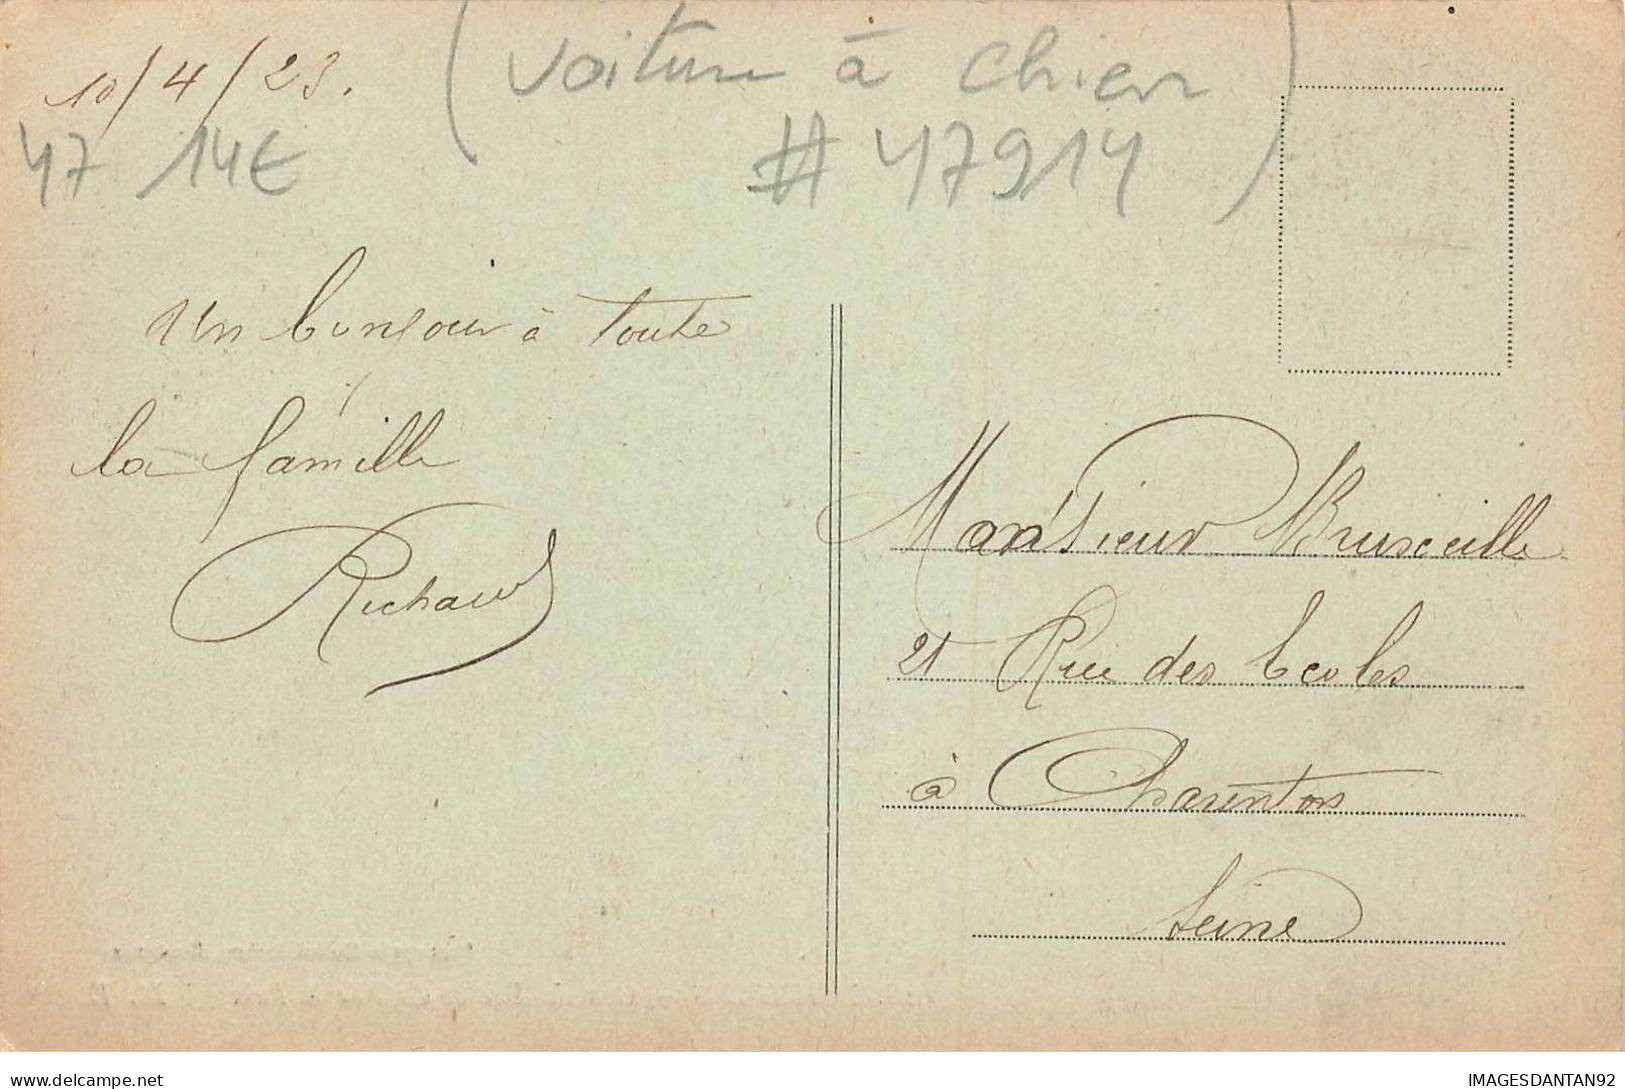 10/4/23.
(voiture à chien
47 14€
# 47914)
Un bonjour à toute
la famille
Richard
Monsieur
21 Rue des Ecoles
à Charenton
Seine
delcampe.net
IMAGESDANTAN92